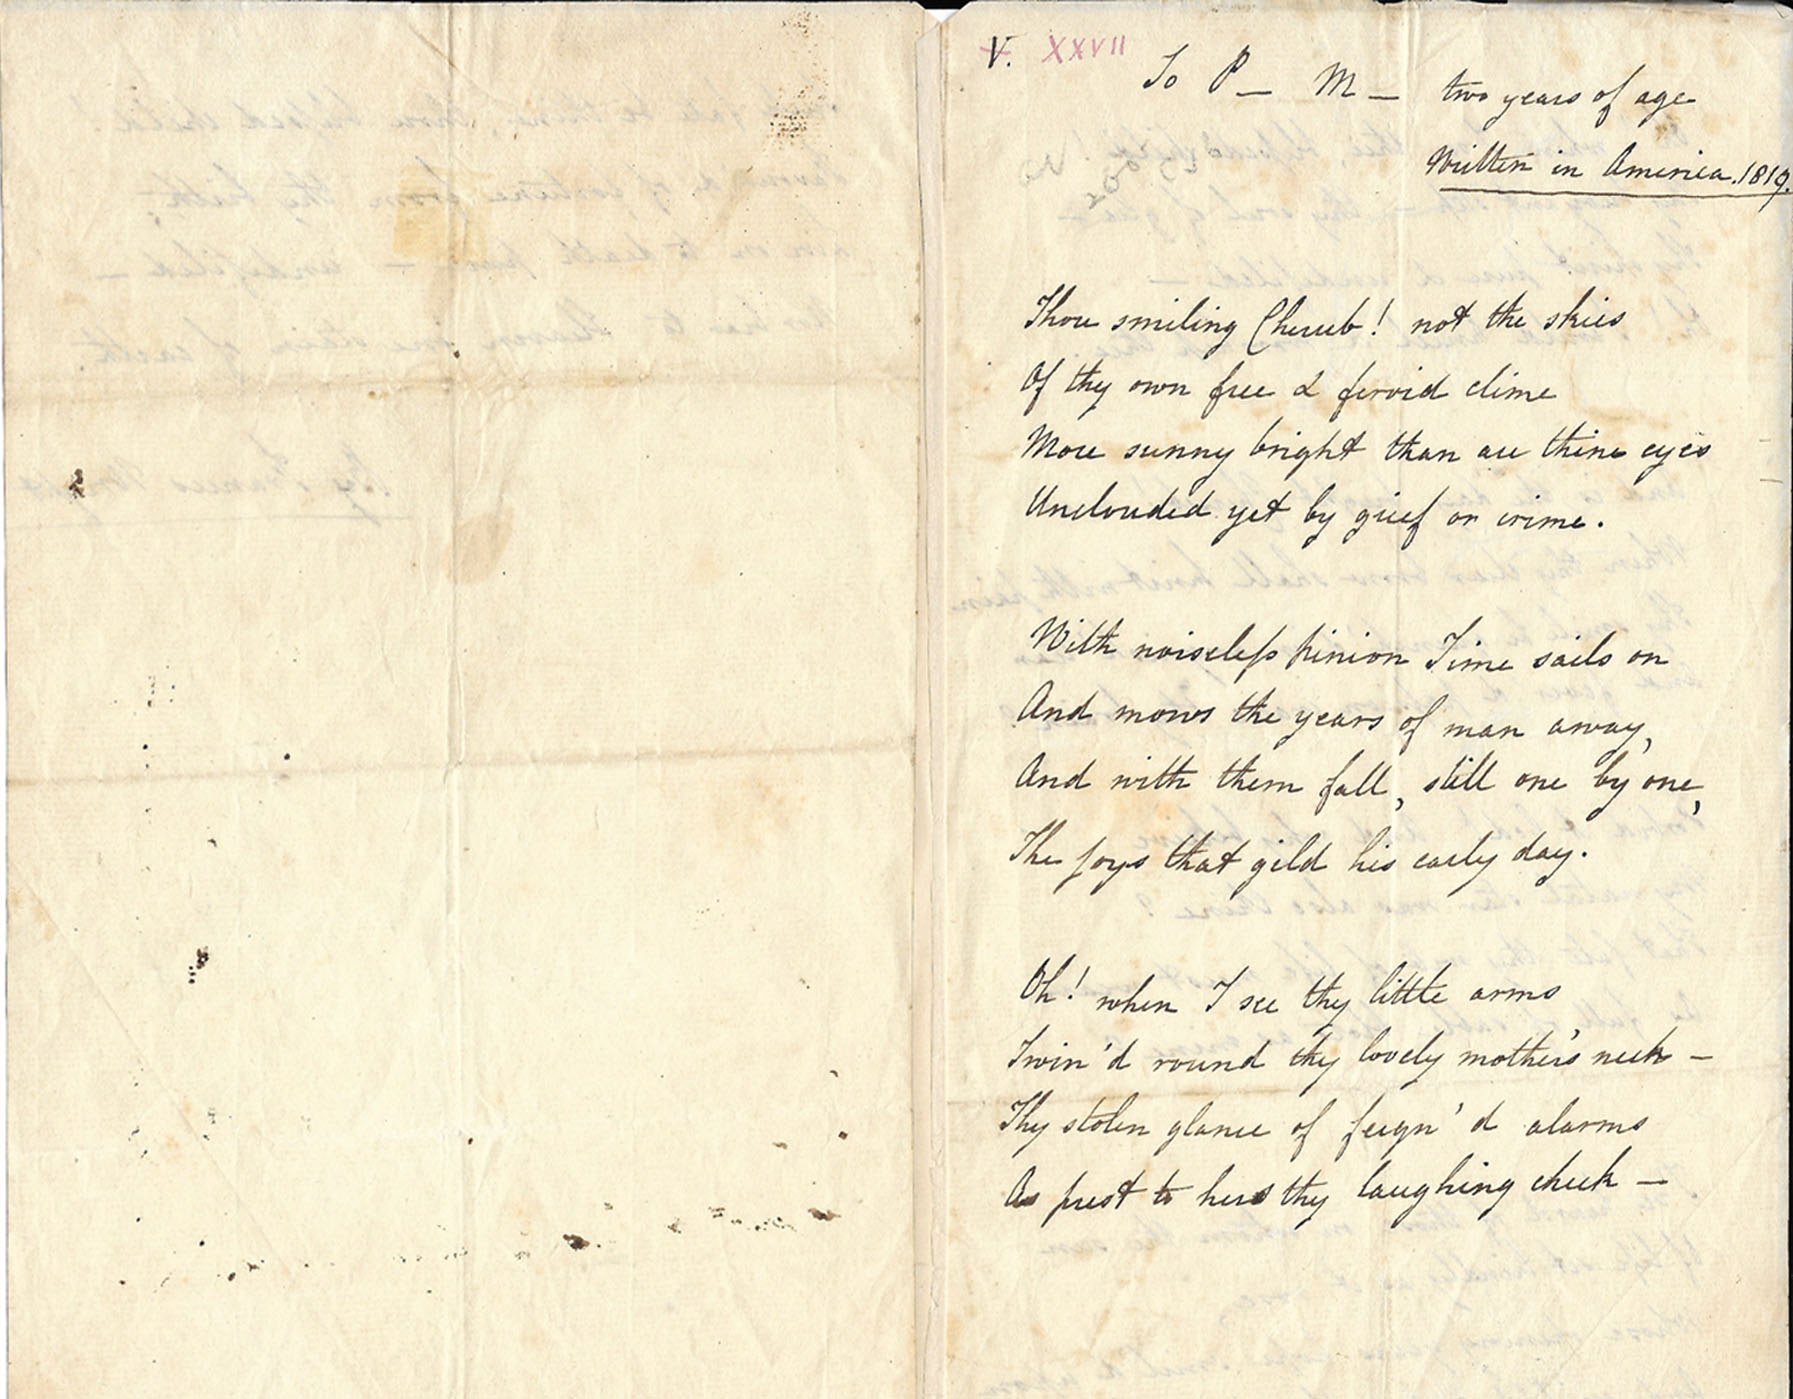 V. XXVII
To P — M — two years of age
Written in America. 1819.
Thou smiling Cherub! not the skies
Of thy own free & fervid clime
More sunny bright than are thine eyes
Unclouded yet by grief or crime.
With noiseless pinion Time sails on
And mows the years of man away,
And with them fall, still one by one,
The joys that gild his early day.
Oh! when I see thy little arms
Twin'd round thy lovely mother's neck —
Thy stolen glance of feign'd alarms
As prest to hers thy laughing cheek —